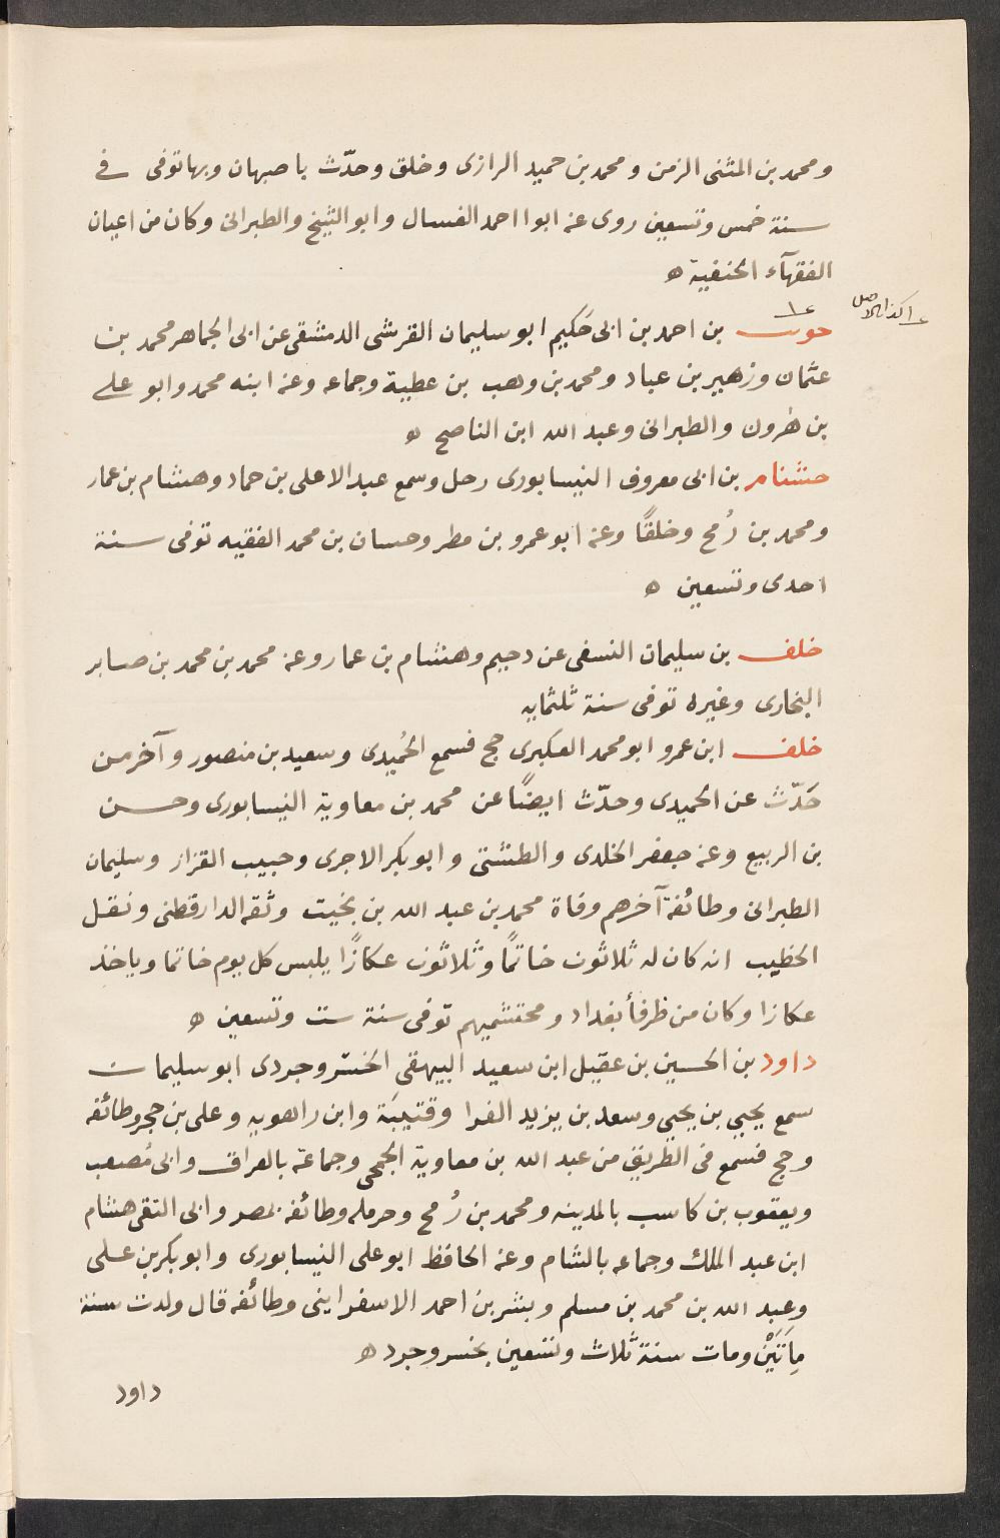 ومحمد بن المثنى الزمن ومحمد بن حميد الرازى وخلق وحدّث باصبهان وبها توفى فى
سنة خمس وتسعين روى عنه ابوا احمد الغسال وابو الشيخ والطبرانى وكان من اعيان
الفقهآء الحنفية ه
كذا بالاصل
حوىت بن احمد بن ابى حَكيم ابو سليمان القرشى الدمشقى عن ابى الجماهر محمد بن
عثمان وزهير بن عباد ومحمد بن وهب بن عطية وجماعه وعنه ابنه محمد وابو على
بن هٰرون والطبرانى وعبد الله ابن الناصح ه
حشنام بن ابى معروف النيسابورى رحل وسمع عبد الاعلى بن حماد وهشام بن عمار
ومحمد بن رُمح وخلقًا وعنه ابو عمرو بن مطر وحسان بن محمد الفقيه توفى سنة
احدى وتسعين ه
خلف بن سليمان النسفى عن دحيم وهشام بن عمار وعنه محمد بن محمد بن صابر
البخارى وغيره توفى سنة ثلثمايه
خلف ابن عمرو ابو محمد العكبرى حج فسمع الحُميدى وسعيد بن منصور وآخر من
حَدّث عن الحميدى وحدّث ايضًا عن محمد بن معاوية النيسابورى وحسن
بن الربيع وعنه جعفر الخلدى والطشتى وابو بكر الاجرى وحبيب القزاز وسليمان
الطبرانى وطائفة آخرهم وفاة محمد بن عبد الله بن بخيت وثقه الدارقطنى ونقل
الخطيب انه كان له ثلاثون خاتمًا وثلاثون عكازًا يلبس كل يوم خاتما وياخذ
عكازا وكان من ظرفأ بغداد ومحتشميهم توفى سنة ست وتسعين ه
داود بن الحسين بن عقيل ابن سعيد البيهقى الخسروجردى ابو سليمان
سمع يحيى بن يحيى وسعد بن يزيد الفرا وقتيبَة وابن راهويه وعلى بن حجر وطائفه
وحج فسمع فى الطريق من عبد الله بن معاوية الجمحى وجماعة بالعراق وابى مُصعب
ويعقوب بن كاسب بالمدينه ومحمد بن رُمح وحرمله وطائفه بمصر وابى التقى هشام
ابن عبد الملك وجماعه بالشام وعنه الحافظ ابو على النيسابورى وابو بكر بن على
وعبد الله بن محمد بن مسلم وبشر بن احمد الاسفراينى وطائفه قال ولدت سنة
مِاَتَيْن ومات سنة ثلاث وتسعين بخسروجرد ه
داود